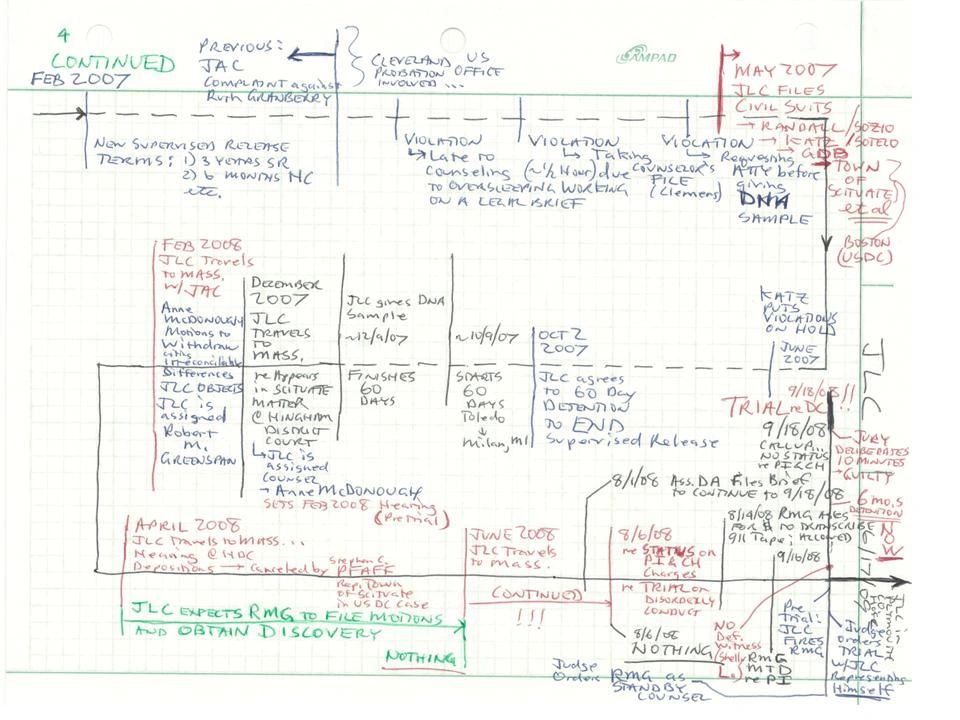 4
CONTINUED
FEB 2007
PREVIOUS:
JAC
COMPLAINT against
Ruth GRANBERRY
CLEVELAND US
PROBATION OFFICE
INVOLVED...
AMPAD
MAY 2007
JLC FILES
CIVIL SUITS
→ RANDALL/SOZIO
→ KATZ/SOTELO
→ GDB
TOWN
OF
SCITUATE
et al
BOSTON
(USDC)
NEW SUPERVISED RELEASE
TERMS: 1) 3 YEARS SR
2) 6 MONTHS HC
etc.
VIOLATION
Late to
counseling (~½ Hour) due
TO OVERSLEEPING WORKING
ON A LEGAL BRIEF
VIOLATION
Taking
COUNSELOR'S
FILE
(Clemens)
VIOLATION
Requesting
ATTY before
giving
DNA
SAMPLE
FEB 2008
JLC Travels
to MASS.
w/JAC
Anne
McDONOUGH
Motions to
Withdraw
citing
irreconcilable
Differences
JLC OBJECTS
JLC is
assigned
Robert
M.
GREENSPAN
DECEMBER
2007
JLC
TRAVELS
TO
MASS.
re Appears
in SCITUATE
MATTER
@ HINGHAM
DISTRICT
COURT
JLC is
assigned
COUNSEL
→ Anne McDONOUGH
SETS FEB 2008 Hearing
(Pretrial)
JLC gives DNA
Sample
~12/9/07
FINISHES
60
DAYS
~10/9/07
STARTS
60
DAYS
Toledo
↓
Milan, MI
OCT 2
2007
JLC agrees
to 60 Day
DETENTION
TO END
Supervised Release
KATZ
PUTS
VIOLATIONS
ON HOLD
JUNE
2007
JLC
9/18/08!!
TRIAL re DC
9/18/08
CALL UP..
NO STATUS
re PI & CH
JURY
DELIBERATES
10 MINUTES
→ GUILTY
6 mo.s
DETENTION
NOW
8/1/08 Ass. DA Files Brief
to CONTINUE to 9/18/08
8/14/08 RMG ASKS
FOR $ to TRANSCRIBE
911 Tape; ALLOWED
9/16/08
APRIL 2008
JLC Travels to MASS...
Hearing @ HDC
Depositions → Canceled by
Stephen C.
PFAFF
Rep. Town
of Scituate
in US DC case
JLC EXPECTS RMG TO FILE MOTIONS
AND OBTAIN DISCOVERY
NOTHING
JUNE 2008
JLC Travels
to mass.
CONTINUED
!!!
8/6/08
re STATUS on
PI & CH
Charges
re TRIAL on
DISORDERLY
CONDUCT
8/6/08
NOTHING
NO
Def.
Witness
(Shelly
L.)
RMG
MTD
re PI
Pre
Trial:
JLC
FIRES
RMG
Judge
Orders
TRIAL
w/JLC
Representing
Himself
Judge
Orders RMG as
STANDBY
COUNSEL